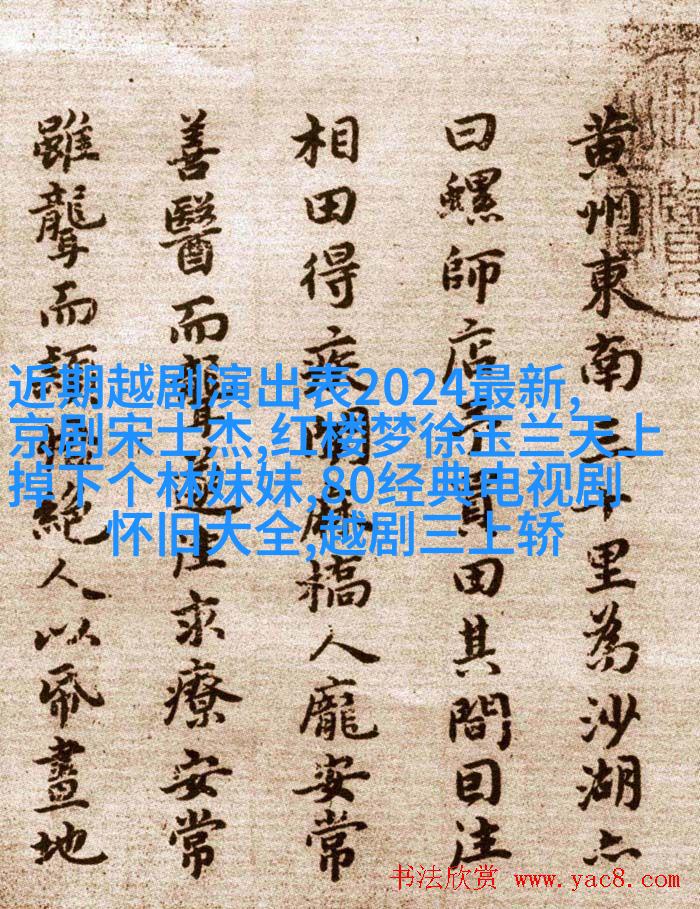 黄州東南三十里為沙湖亦
曰螺師店予買田其間因往
相田得疾聞麻橋人龐安常
善醫而聾遂往求療安常
雖聾而穎悟絕人以紙畫地
近期越剧演出表2024最新,
京剧宋士杰,红楼梦徐玉兰天上
掉下个林妹妹,80经典电视剧
怀旧大全,越剧三上轿
书法欣赏 www.yac8.com